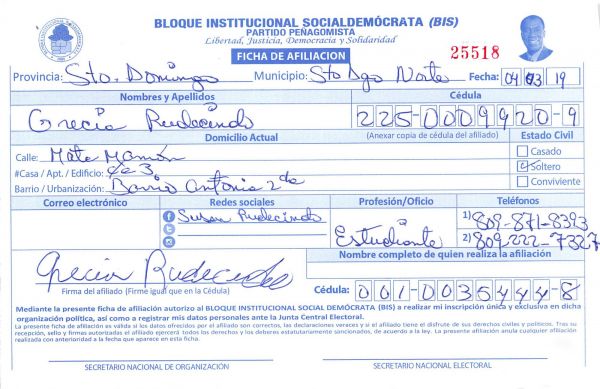 BLOQUE INSTITUCIONAL SOCIALDEMÓCRATA (BIS)
PARTIDO PEÑAGOMISTA
Libertad, Justicia, Democracia y Solidaridad
FICHA DE AFILIACION
25518
Provincia: Sto. Domingo Municipio: Sto Dgo Norte Fecha: 04 03 19
Nombres y Apellidos Cédula
Grecia Rudecindo 225-0009920-9
Domicilio Actual (Anexar copia de cédula del afiliado) Estado Civil
Calle: Mata Mamón Casado
#Casa / Apt. / Edificio: Soltero
Barrio / Urbanización: Barrio Antonia 2da Conviviente
Correo electrónico Redes sociales Profesión/Oficio Teléfonos
Susan Rudecindo Estudiante 1) 809-871-8393
2) 809-222-7327
Nombre completo de quien realiza la afiliación
Grecia Rudecindo
Firma del afiliado (Firme igual que en la Cédula) Cédula: 001-0035444-8
Mediante la presente ficha de afiliación autorizo al BLOQUE INSTITUCIONAL SOCIAL DEMÓCRATA (BIS) a realizar mi inscripción única y exclusiva en dicha
organización política, así como a registrar mis datos personales ante la Junta Central Electoral.
La presente ficha de afiliación es válida si los datos ofrecidos por el afiliado son correctos, las declaraciones veraces y si el afiliado tiene el disfrute de sus derechos civiles y políticos. Tras su
recepción, sello y firmas autorizadas el afiliado ejercerá todos los derechos y los deberes estatutariamente sancionados, de acuerdo a la ley. La presente afiliación anula cualquier afiliación
realizada con anterioridad a la fecha que aparece en esta ficha.
SECRETARIO NACIONAL DE ORGANIZACIÓN SECRETARIO NACIONAL ELECTORAL